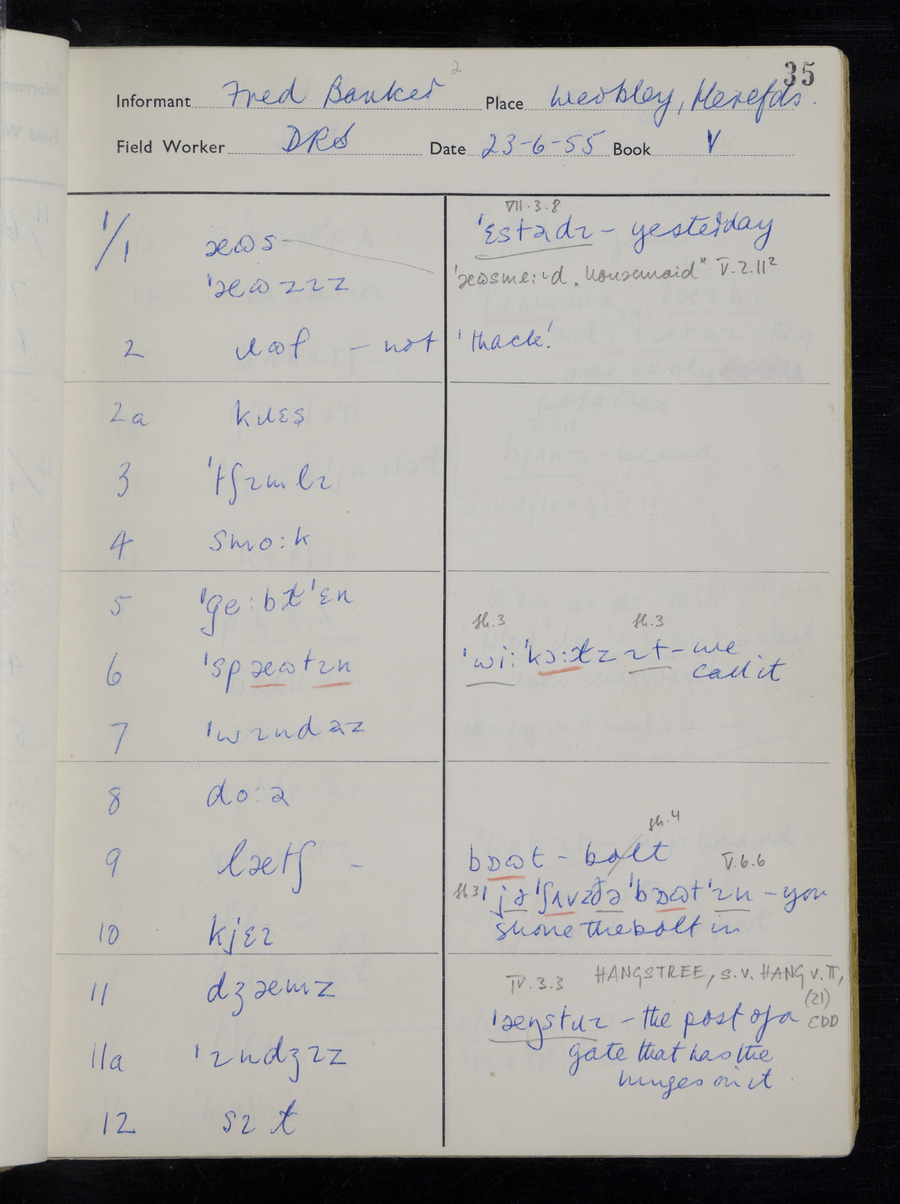 35
Informant Fred Banker 2 Place Weobley, Herefds.
Field Worker DRS Date 23-6-55 Book V
1/1 æɷs
VII.3.8
ˈɛstədɪ – yesterday
ˈæɷzɪz
ˈæɷsmeːɪd "housemaid" V.2.11²
2 ɹɷf – not 'thack'.
2a kɹɛs
3 ˈtʃɪmlɪ
4 smoːk
5 ˈgeːbɫˈɛn
sh.3 sh.3
6 ˈspæɷtɪn
ˈwiːˈkɔːɫz ɪt – we
call it
7 ˈwɪndəz
8 doːə
sh.4
9 lætʃ –
bɒɷt – bolt V.6.6
sh.3 jəˈʃʌvzðəˈbɒɷtˈɪn – you
shove the bolt in
10 kjɛɪ
IV.3.3 HANGSTREE, s.v. HANG v. II,
(21)
EDD
11 dʒæmz
ˈæŋstɹɪ – the post of a
gate that has the
hinges on it
11a ˈɪndʒɪz
12 sɪɫ